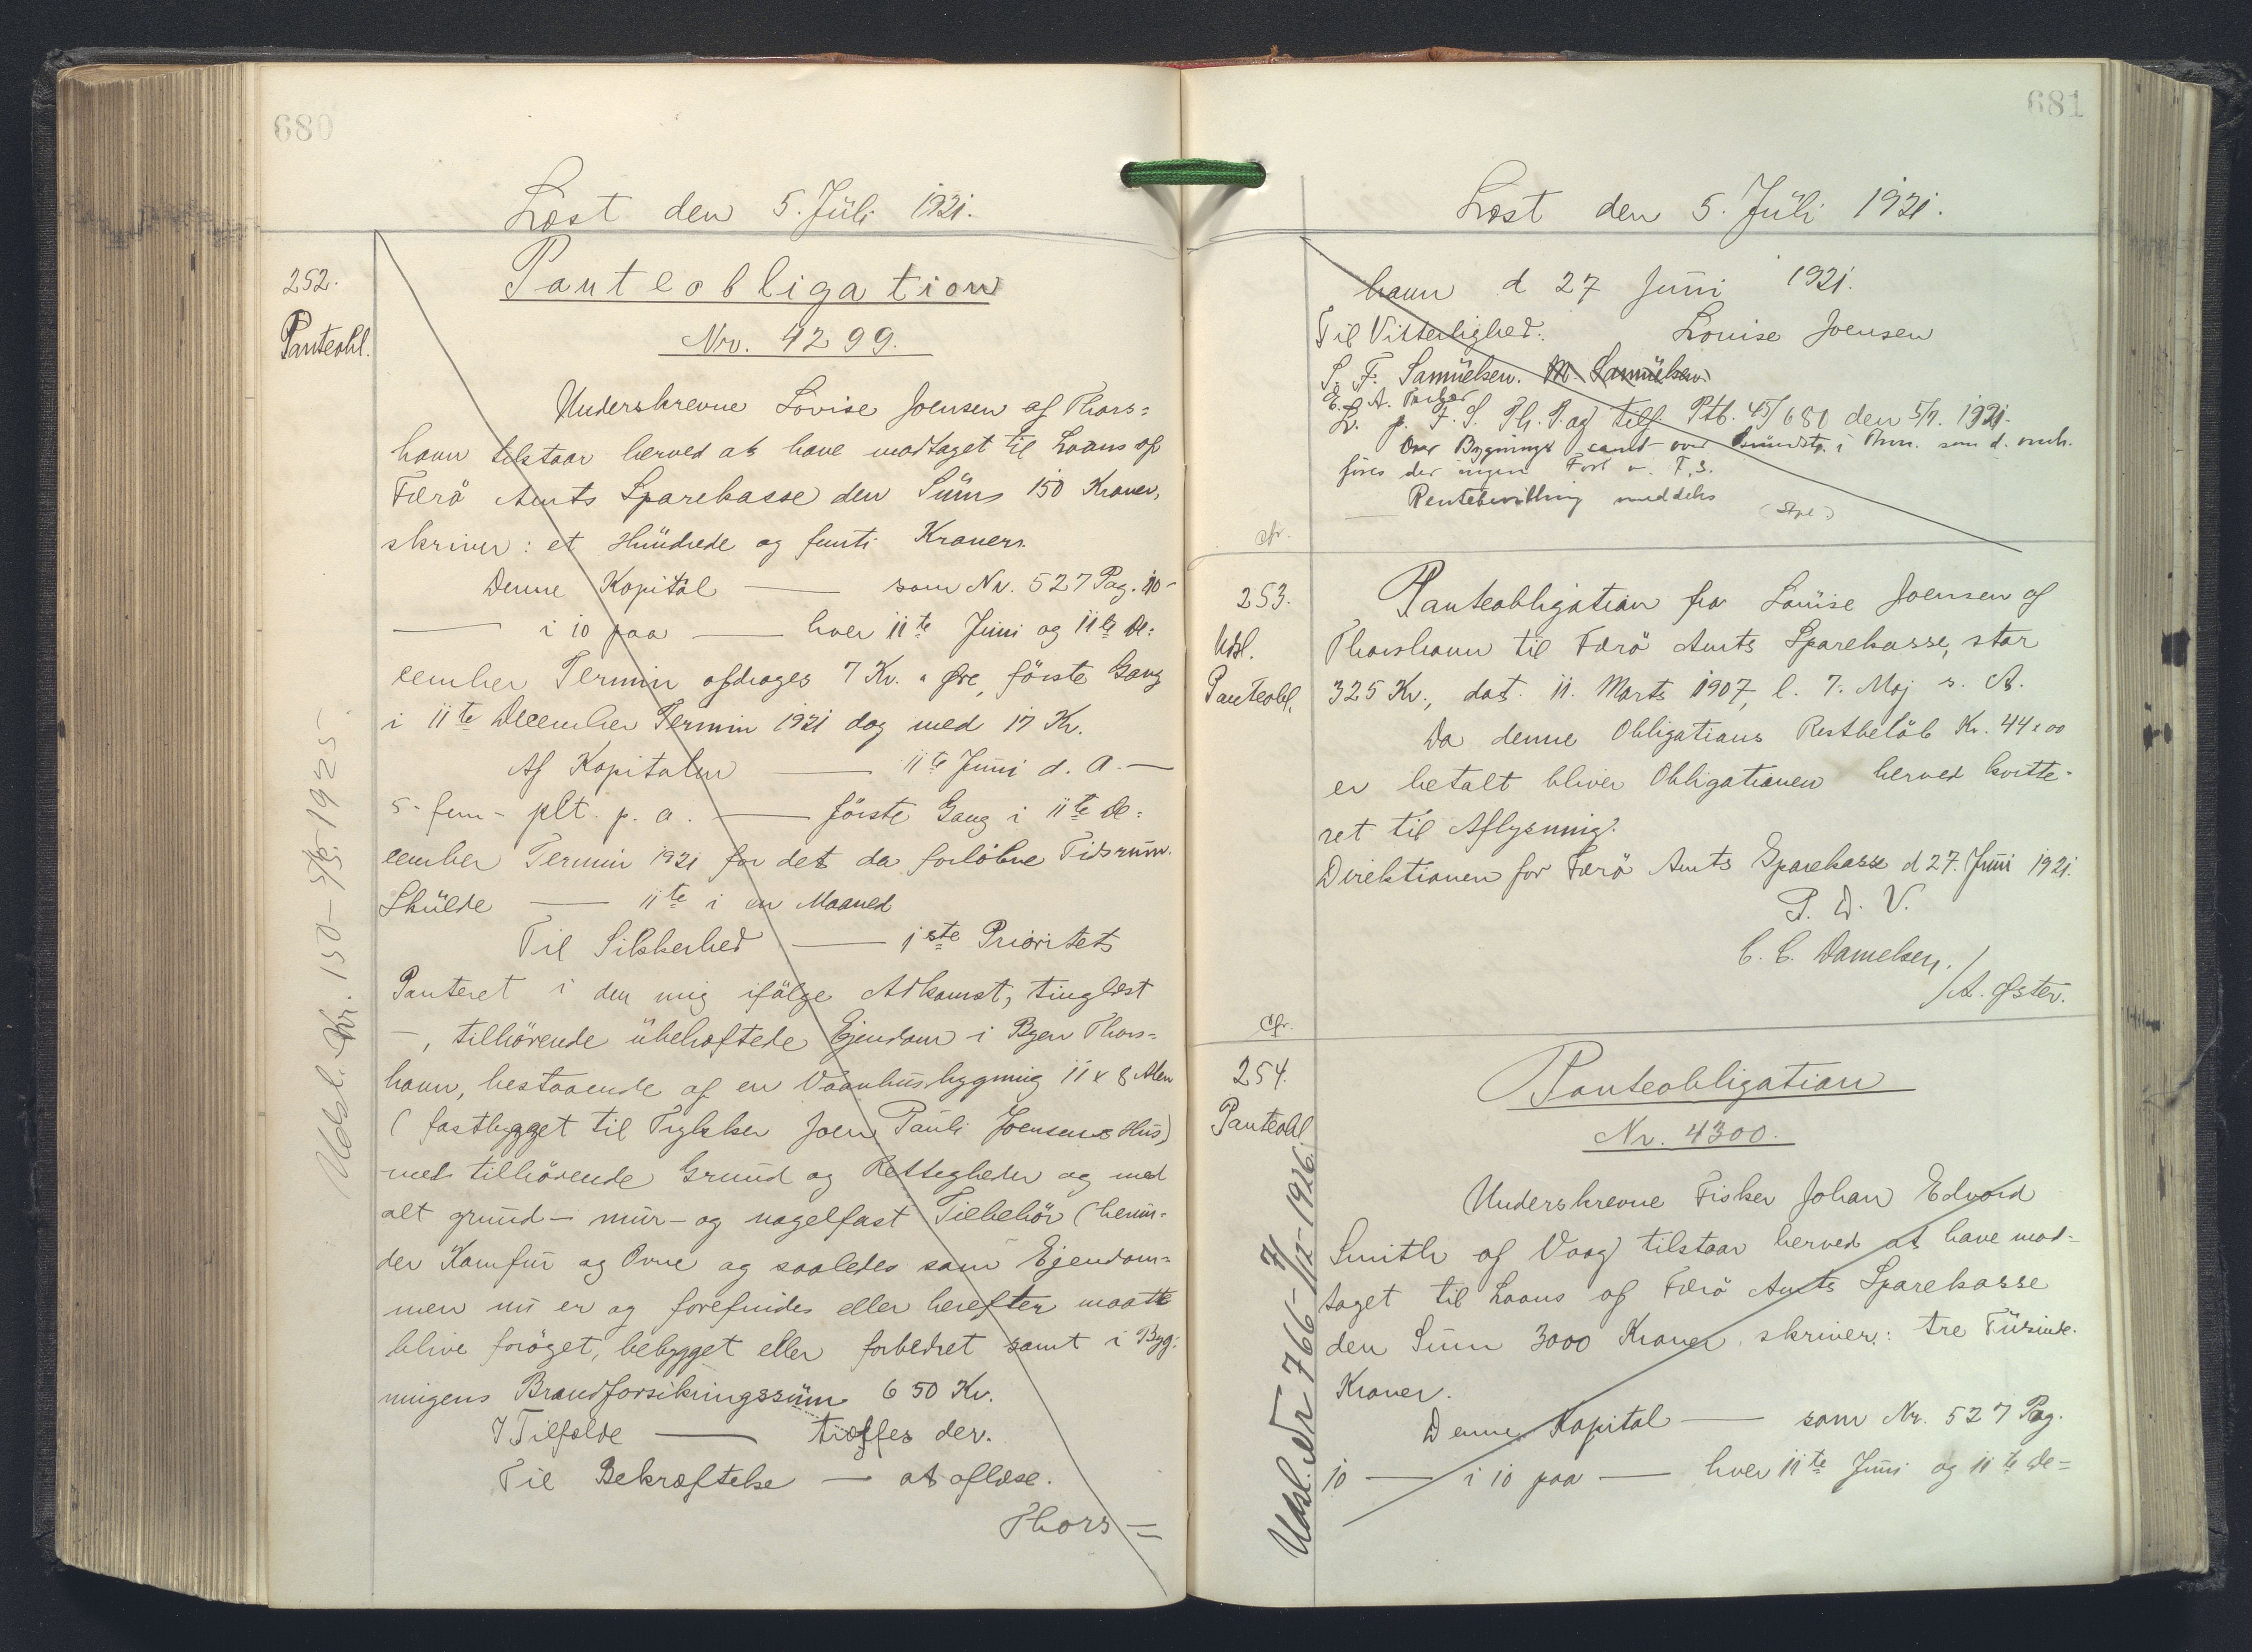 680
Læst den 5. Juli 1921.
252.
Panteobl.
Panteobligation
Nr. 4299.
Underskrevne Lovise Joensen af Thors=
havn tilstaar herved at have modtaget til Laans af
Færø Amts Sparekasse den Sum 150 Kroner,
skriver: et Hundrede og femti Kroner.
Denne Kapital — som Nr. 527 Pag. 10 -
— i 10 paa — hver 11te Juni og 11te De=
cember Termin afdrages 7 Kr. " Øre, første Gang
i 11te December Termin 1921 dog med 17 Kr.
Af Kapitalen — 11te Juni d. A. —
5 - fem - pCt. p. a. — første Gang i 11te De=
cember Termin 1921 for det da forløbne Tidsrum.
Skulde — 11te i en Maaned
Til Sikkerhed — 1ste Prioritets
Panteret i den mig ifølge Adkomst, tinglæst
—, tilhørende ubehæftede Ejendom i Byen Thors=
havn, bestaaende af en Vaanhusbygning 11 x 8 Alen
(fastbygget til Joen Pauli Joensens Hus)
med tilhørende Grund og Rettigheder og med
alt grund- mur- og nagelfast Tilbehør (herun-
der Komfur og Ovne og saaledes som Ejendom=
men nu er og forefindes eller herefter maatte
blive forøget, bebygget eller forbedret samt i Byg-
ningens Brandforsikringssum 650 Kr.
I Tilfælde — træffes der.
Til Bekræftelse — at aflæse.
Thors=
Udsl. Kr. 150 - 5/5 1925
681
Læst den 5. Juli 1921.
havn d 27 Juni 1921.
Til Vitterlighed. Louise Joensen
S. F. Samuelsen. M. Samuelsen.
L. p. F. S. Th. P. og tilf Ptb. 45/680 den 5/7. 1921.
Over Bygninger samt over Grundstr. i Thvn. som d. omh.
føres der ingen Fort o. F. S.
Rentebevilling meddeles
cfr.
253.
Udsl.
Panteobl.
Panteobligation fra Louise Joensen af
Thorshavn til Færø Amts Sparekasse, stor
325 Kr., dat. 11. Marts 1907, l. 7. Maj s. A.
Da denne Obligations Restbeløb Kr. 44 x 00
er betalt bliver Obligationen herved kvitte-
ret til Aflysning.
Direktionen for Færø Amts Sparekasse d 27. Juni 1921.
P. D. V.
C. C. Danielsen.
/A. Øster.
cfr.
254.
Panteobl
Panteobligation
Nr. 4300.
Underskrevne Fisker Johan Edvard
Smith af Vaag tilstaar herved at have mod-
taget til Laans af Færø Amts Sparekasse
den Sum 3000 Kroner, skriver: tre Tusinde
Kroner.
Denne Kapital — som Nr. 527 Pag.
10 — i 10 paa — hver 11te Juni og 11te De=
Udsl. Nr 766 - 7/12 - 1926.